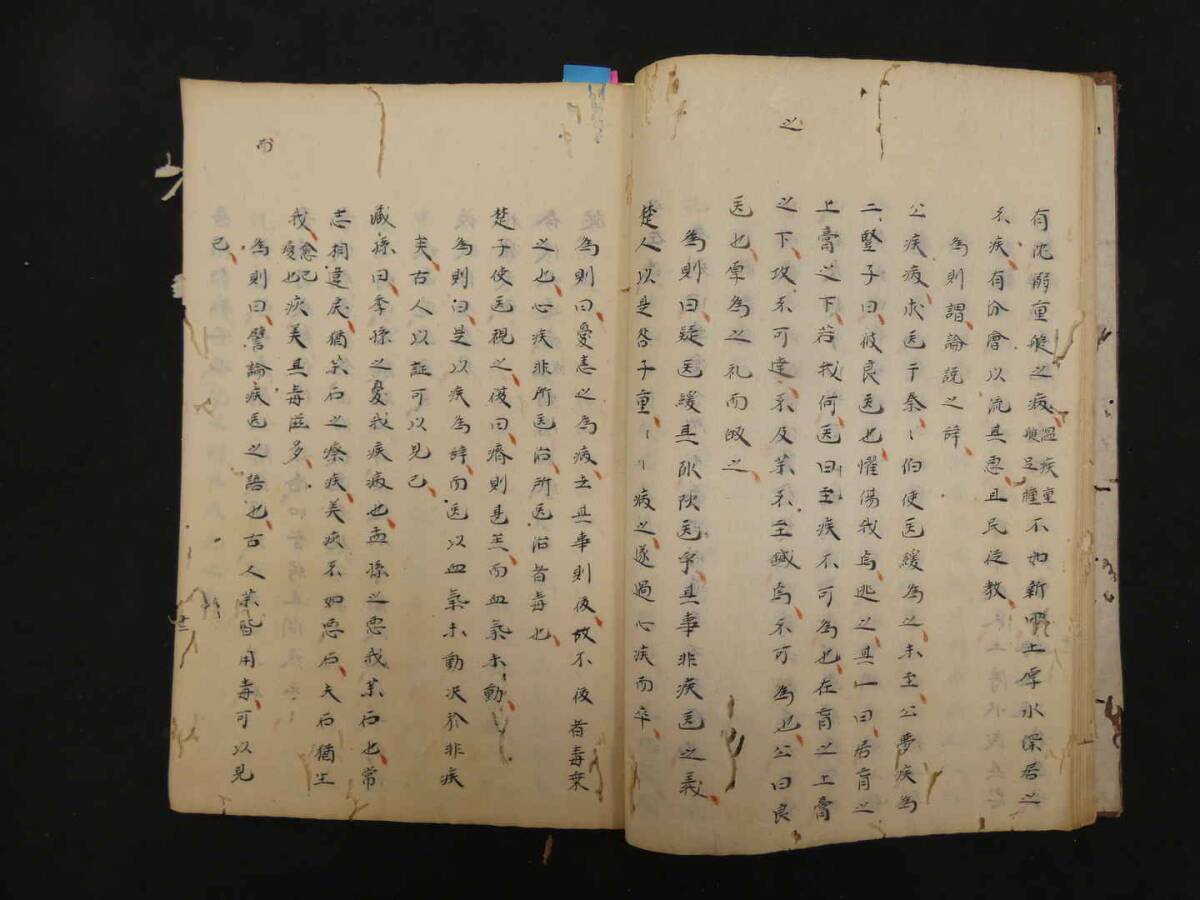 之
有沈溺重膇之病湿疾重膇足腫不如新土厚水深居之
不疾有汾會以流其悪且民従教
為則謂論説之辞
公疾病求医于秦ヽ伯使医緩為之未至公夢疾為
二豎子曰彼良医也懼傷我焉逃之其一曰居肓之
上膏之下若我何医曰至疾不可為也在肓之上膏
之下攻不可達不及薬不至鍼焉不可為也公曰良
医也厚為之礼而皈之
為則曰疑医緩其医乎其事非疾医之義
楚人以是咎子重ヽヽ病之遂遇心疾而卒
而
為則曰憂恚之為病去其事則復故不復者毒乗
之也心疾非所医治所医治者毒也
楚子使医視之復曰瘠則甚矣而血氣未動
為則曰是以疾為辞而医以血氣未動决於非疾
矣古人以証可以見已
臧孫曰季孫之愛我疾疢也孟孫之悪我薬石也常
志相違戻猶薬石之療疾美疢不如悪石夫石猶生
我愈己疾也疢美其毒滋多
為則曰譬論疾医之語也古人薬皆用毒可以見
已